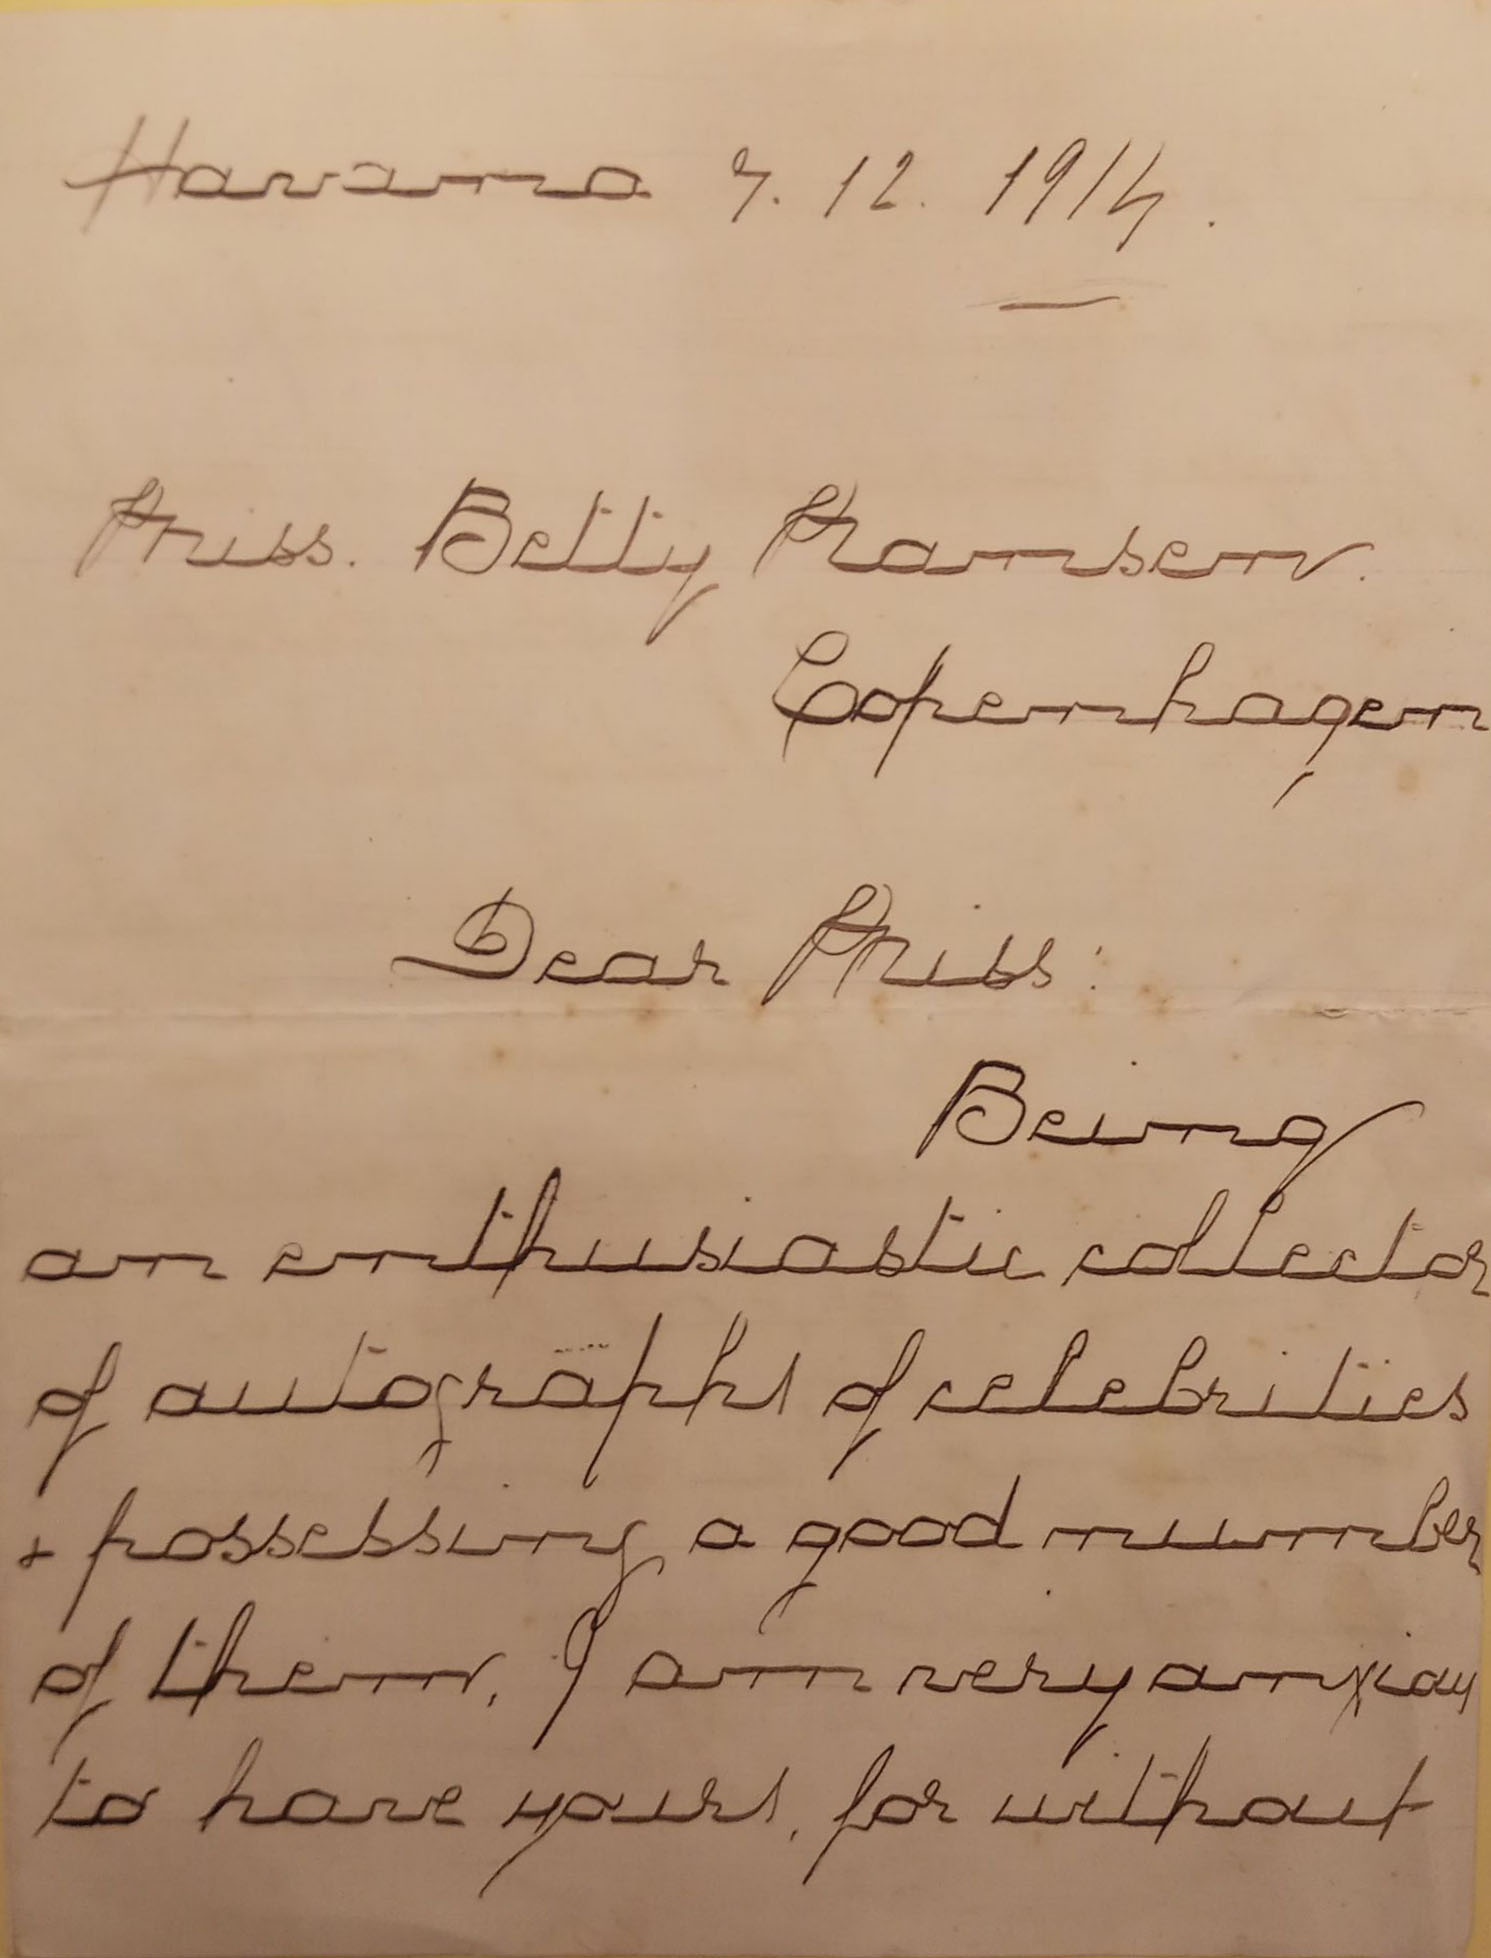 Havana 7. 12. 1914.
Miss. Betty Hansen.
Copenhagen
Dear Miss:
Being
an enthusiastic collector
of autographs of celebrities
& possessing a good number
of them, I am very anxious
to have yours, for without